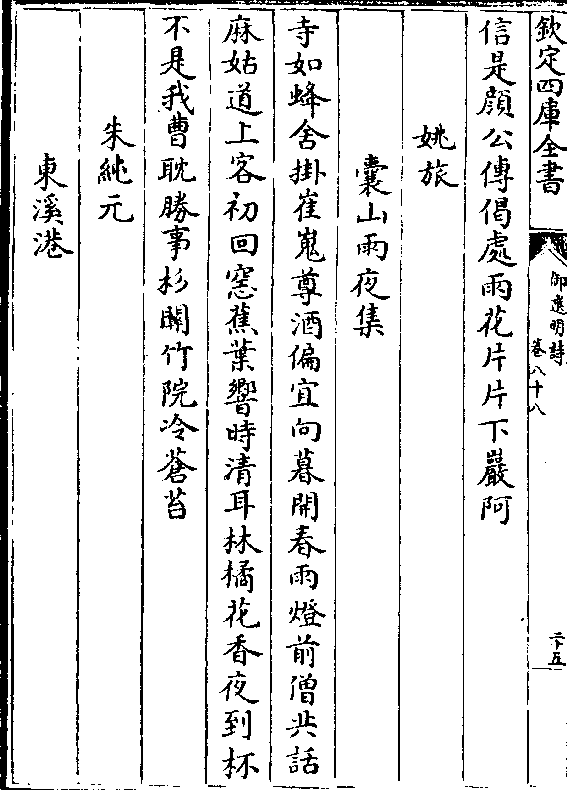 欽定四庫全書
御選明詩
卷八十八
二十五
信是顔公傳偈處雨花片片下巖阿
姚旅
囊山雨夜集
寺如蜂舍掛崔嵬尊酒偏宜向暮開春雨燈前僧共話
麻姑道上客初回窓蕉葉響時清耳林橘花香夜到杯
不是我曹耽勝事杉關竹院冷蒼苔
朱純元
東溪港